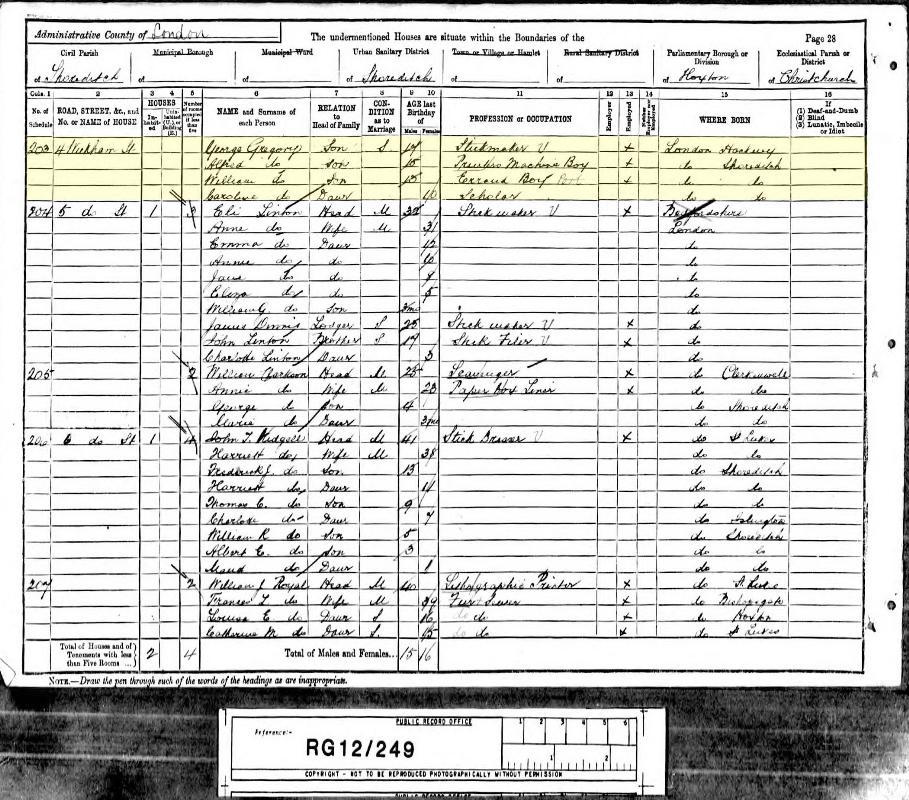 Administrative County of London
The undermentioned Houses are situate within the Boundaries of the
Page 28
Civil Parish
Municipal Borough
Municipal Ward
Urban Sanitary District
Town or Village or Hamlet
Rural Sanitary District
Parliamentary Borough or Division
Ecclesiastical Parish or District
of Shoreditch of of of Shoreditch of of of Hoxton of Christchurch
Cols. 1 2 3 4 5 6 7 8 9 10 11 12 13 14 15 16
No. of Schedule
ROAD, STREET, &c., and No. or NAME of HOUSE
HOUSES
Inhabited
Uninhabited (U.) or Building (B.)
Number of rooms occupied if less than five
NAME and Surname of each Person
RELATION to Head of Family
CONDITION as to Marriage
AGE last Birthday of
Males
Females
PROFESSION or OCCUPATION
Employer
Employed
Neither Employer nor Employed
WHERE BORN
If
(1) Deaf-and-Dumb
(2) Blind
(3) Lunatic, Imbecile or Idiot
203 4 St George Gregory Son S Stickmaker V + London Hackney
Alfred do Son 15 Printers Machine Boy + do Shoreditch
William do Son Errand Boy + do do
Caroline do Daur 10 Scholar do do
204 5 do St 1 3 Eli Linton Head M 32 Stick maker V x Bedfordshire
Anne do Wife M 31 London
Emma do Daur 12 do
Annie do do do
Jane do do do
Eliza do do 5 do
William G do Son do
James Dennis Lodger S 25 Stick maker V x do
John Linton Brother S 19 Stick Filer V x do
Charlotte Linton Daur 3 do
205 2 William Head M 25 Scavenger x do Clerkenwell
Annie do Wife M 23 Paper Box Liner x do do
George do Son 4 do Shoreditch
Maria do Daur do do
206 6 do St 1 4 John T. Head M 41 Stick V x do St Lukes
Harriett do Wife M 38 do do
Frederick J. do Son 13 do Shoreditch
Harriett do Daur 11 do do
Thomas C. do Son 9 do do
Charlotte do Daur 7 do Islington
William R do Son 5 do Shoreditch
Albert E. do Son 3 do do
Maud do Daur 1 do do
207 2 William J Royal Head M 40 Lithographic Printer x do St Lukes
Frances L do Wife M 39 Fur Sewer x do Bishopsgate
Louisa E do Daur S 16 do do x do Hoxton
Catherine M do Daur S. 15 do do x do St Lukes
Total of Houses and of Tenements with less than Five Rooms ... 2 4
Total of Males and Females... 15 16
NOTE.—Draw the pen through such of the words of the headings as are inappropriate.
PUBLIC RECORD OFFICE
1 2 3 4 5 6
Reference:-
RG12/249
1 2
COPYRIGHT - NOT TO BE REPRODUCED PHOTOGRAPHICALLY WITHOUT PERMISSION
PUBLIC RECORD OFFICE